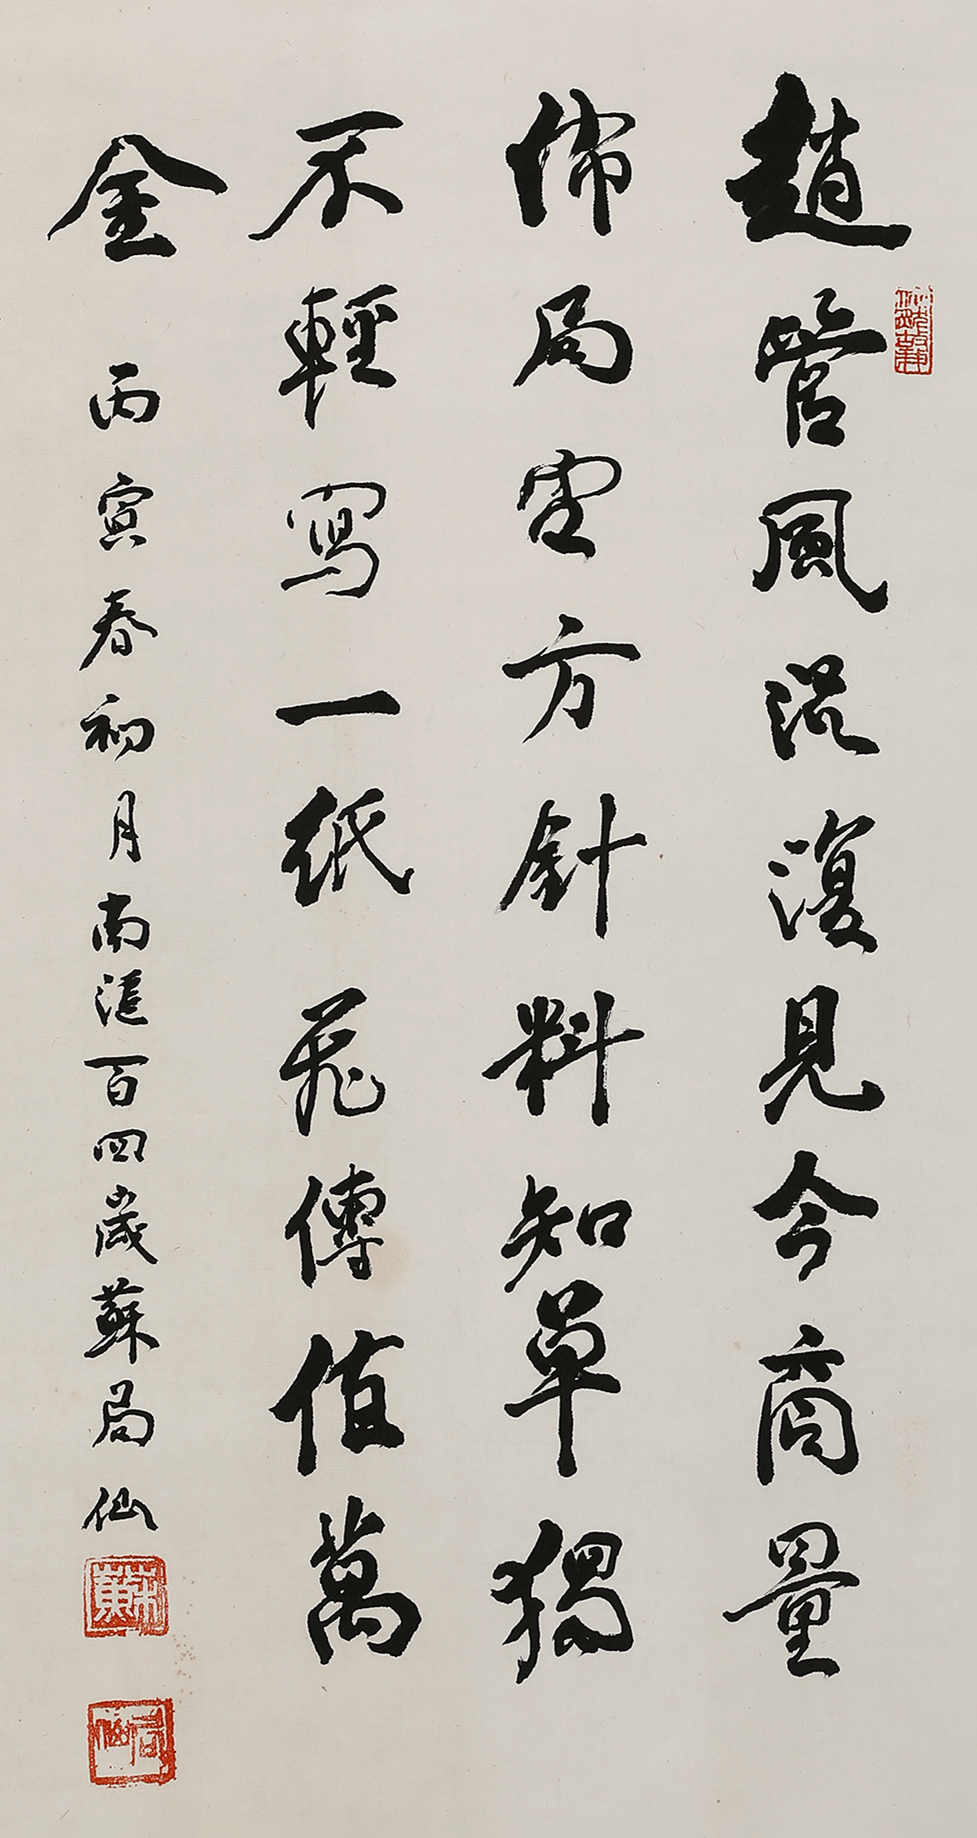 趙管風流復見今商量
佈局定方針料知單獨
不輕寫一紙飛傳值萬
金
丙寅春初月南滙百四歲蘇局仙
蘇
局仙